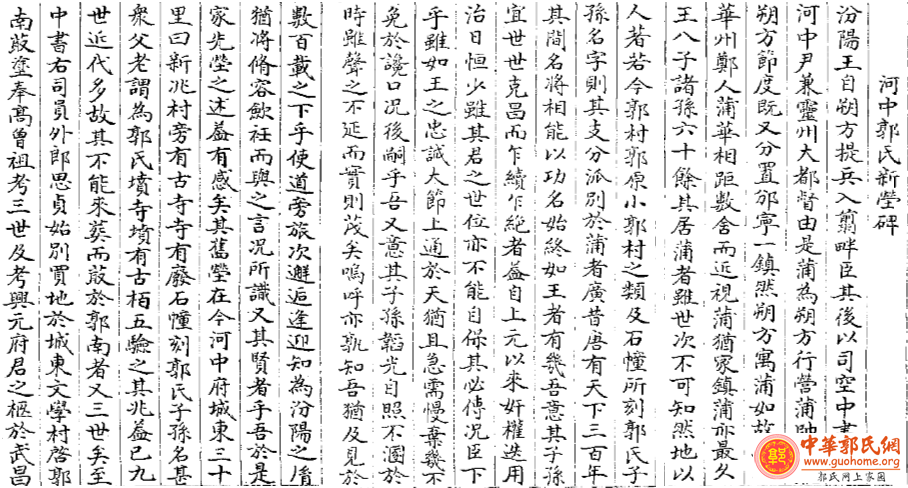 河中郭氏新塋碑
汾陽王自朔方提兵入翦畔臣其後以司空中書
河中尹兼靈州大都督由是蒲為朔方行營蒲帥
朔方節度既又分置邠寧一鎮然朔方寓蒲如故
華州鄭人蒲華相距數舍而近視蒲猶家鎮蒲亦最久
王八子諸孫六十餘其居蒲者雖世次不可知然地以
人著若今郭村郭原小郭村之類及石幢所刻郭氏子
孫名字則其支分派別於蒲者廣昔唐有天下三百年
其間名將相能以功名始終如王者有幾吾意其子孫
宜世世克昌而乍續乍絕者蓋自上元以來奸權迭用
治日恒少雖其君之世位亦不能自保其必傳況臣下
乎雖如王之忠誠大節上通於天猶且急需慢棄幾不
免於讒口況後嗣乎吾又意其子孫韜光自照不溷於
時雖聲之不延而實則茂矣嗚呼亦孰知吾猶及見於
數百載之下乎使道旁旅次邂逅逢迎知為汾陽之裔
猶將脩容歛衽而與之言況所識又其賢者乎吾於是
家先塋之述蓋有感矣其舊塋在今河中府城東三十
里曰新兆村旁有古寺寺有廢石幢刻郭氏子孫名甚
衆父老謂為郭氏墳寺墳有古栢五驗之其兆蓋已九
世近代多故其不能來葬而葬於郭南者又三世矣至
中書右司員外郎思貞始別買地於城東文學村啓郭
南菆塗奉高曾祖考三世及考興元府君之柩於武昌
中華郭氏網
www.guohome.org
郭氏網上家園